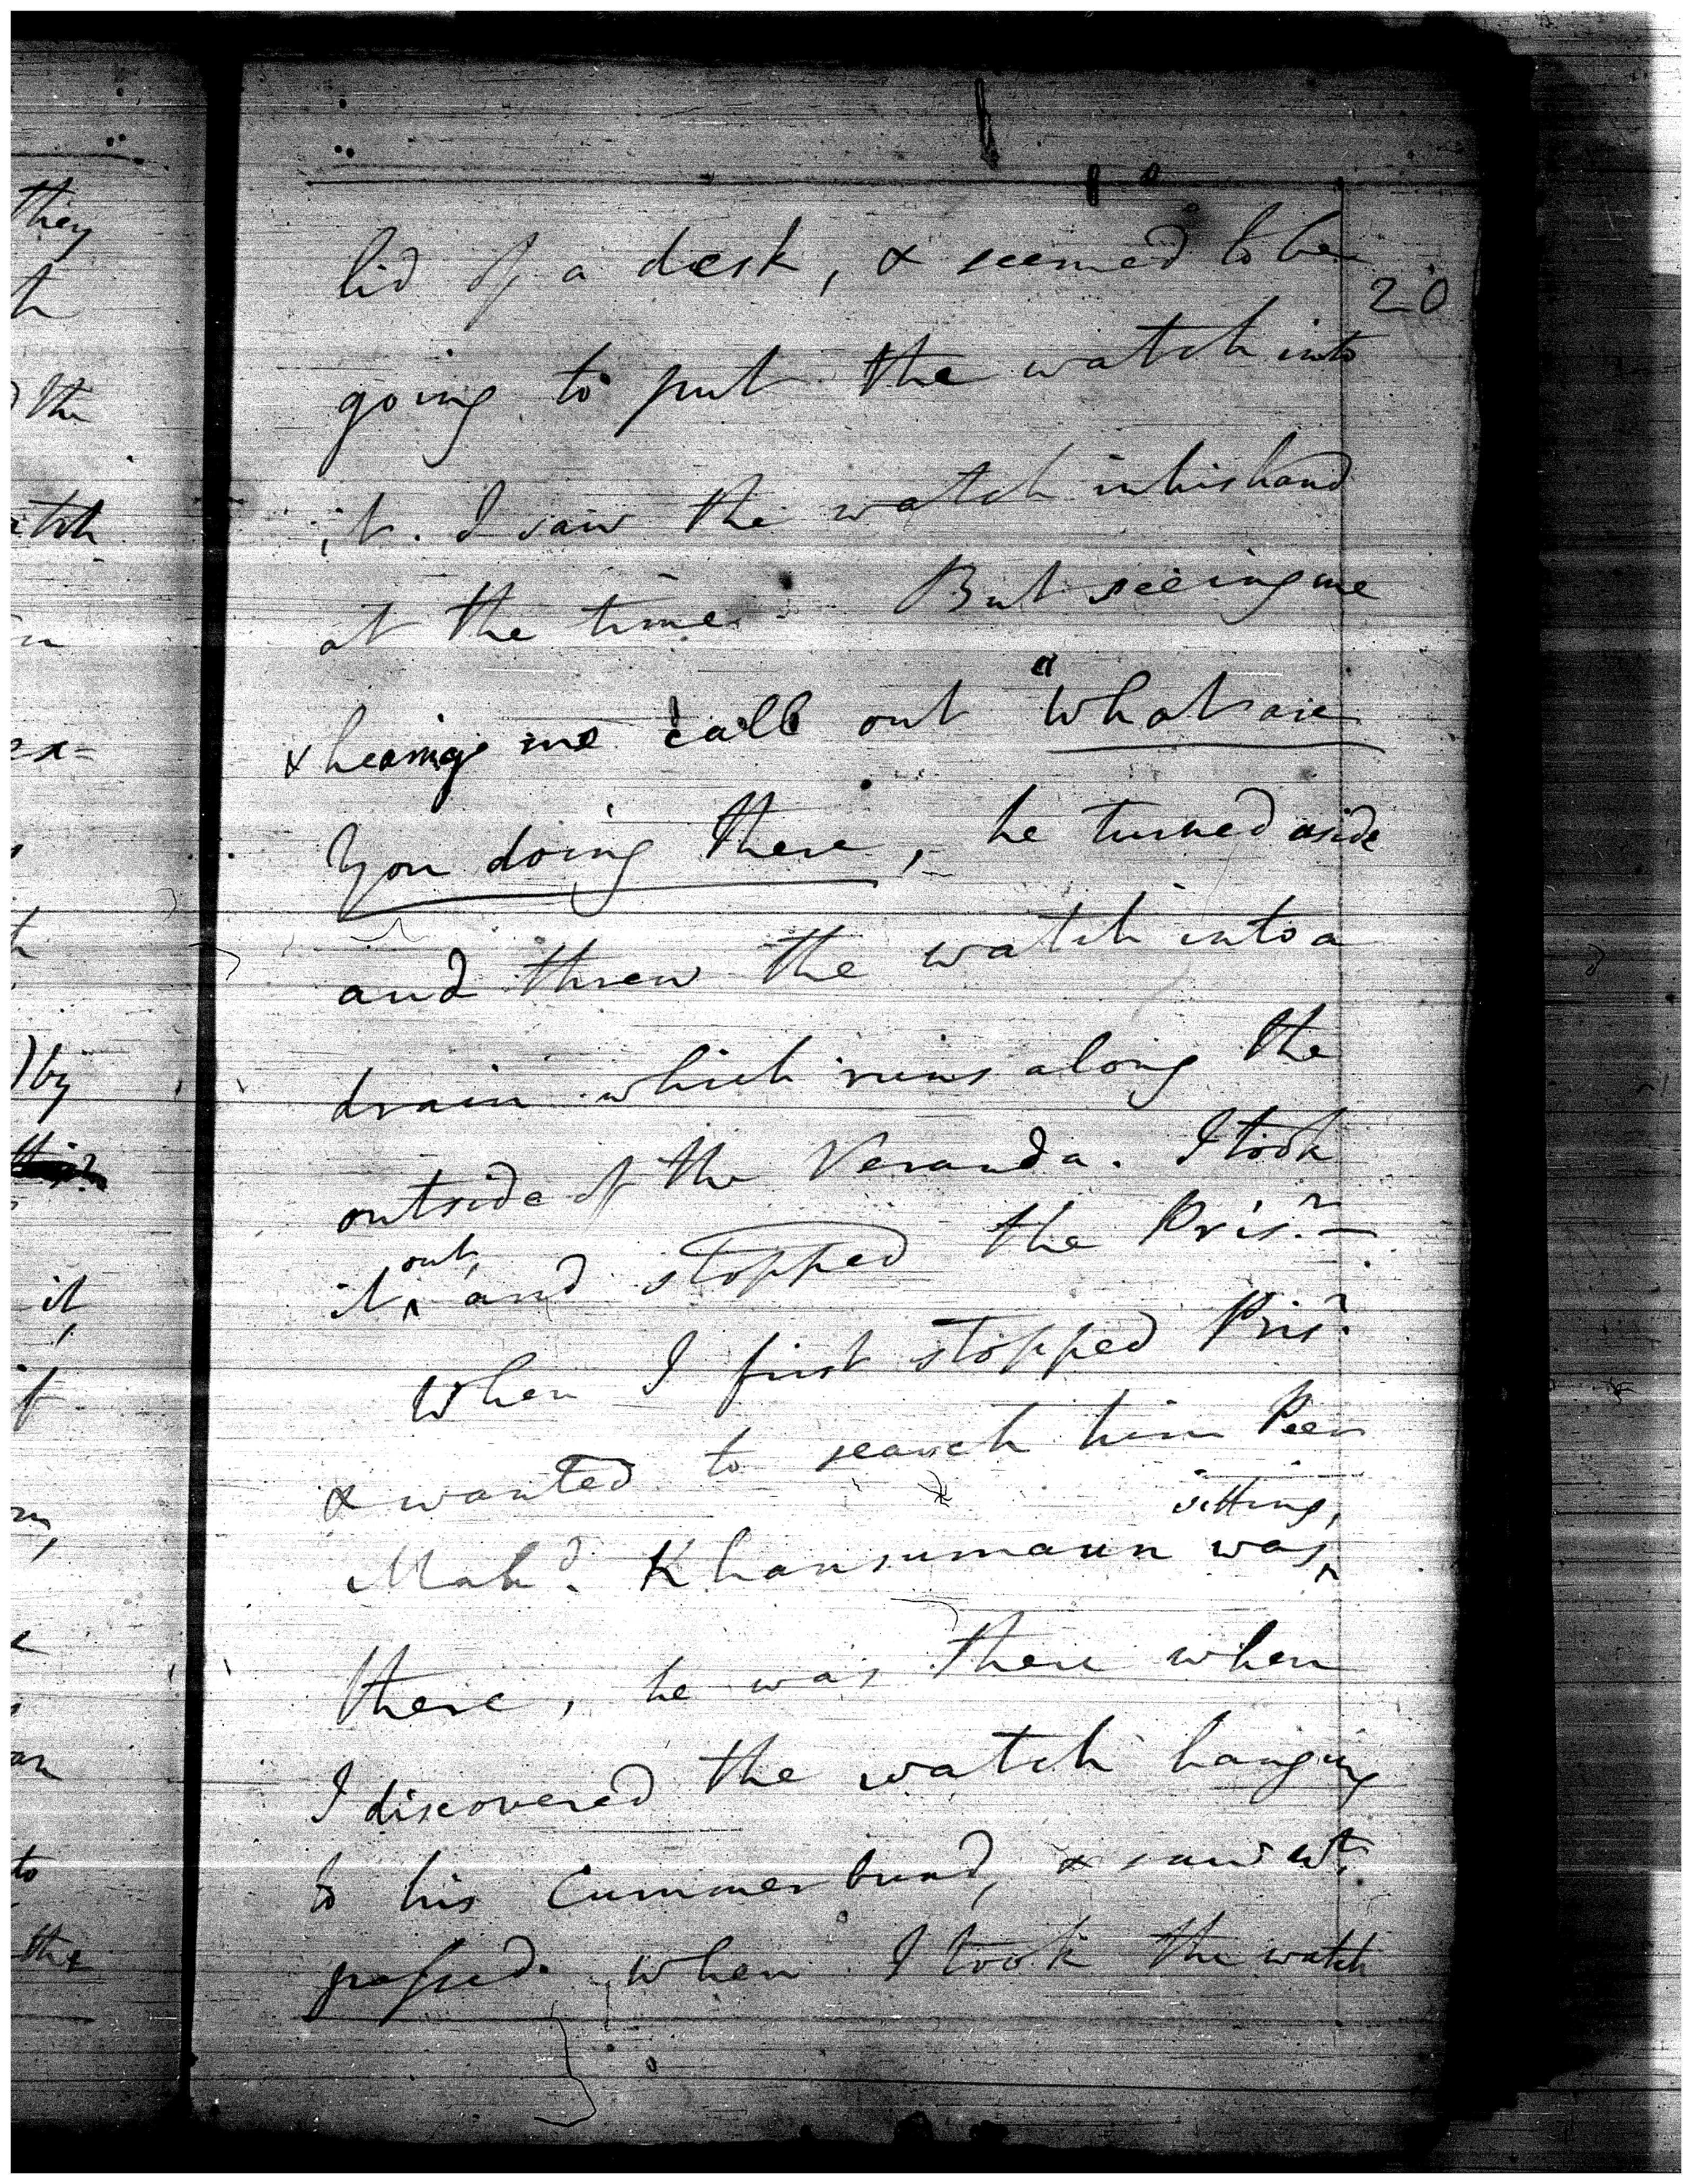 20
lid of a desk, & seemed to be
going to put the watch into
it. I saw the watch in his hand
at the time. But seeing me
& hearing me call out "What are
you doing there, he turned aside
and threw the watch into a
drain which runs along the
outside of the Veranda. I took
it out, and stopped the Pris.r
When I first stopped Pris.r
& wanted to search him Peer
Mah.d Khansumaun was sitting,
there, he was there when
I discovered the watch hanging
to his Cummerbund, & saw wt.
passed. when I took the watch
they
the
by
it
to
the